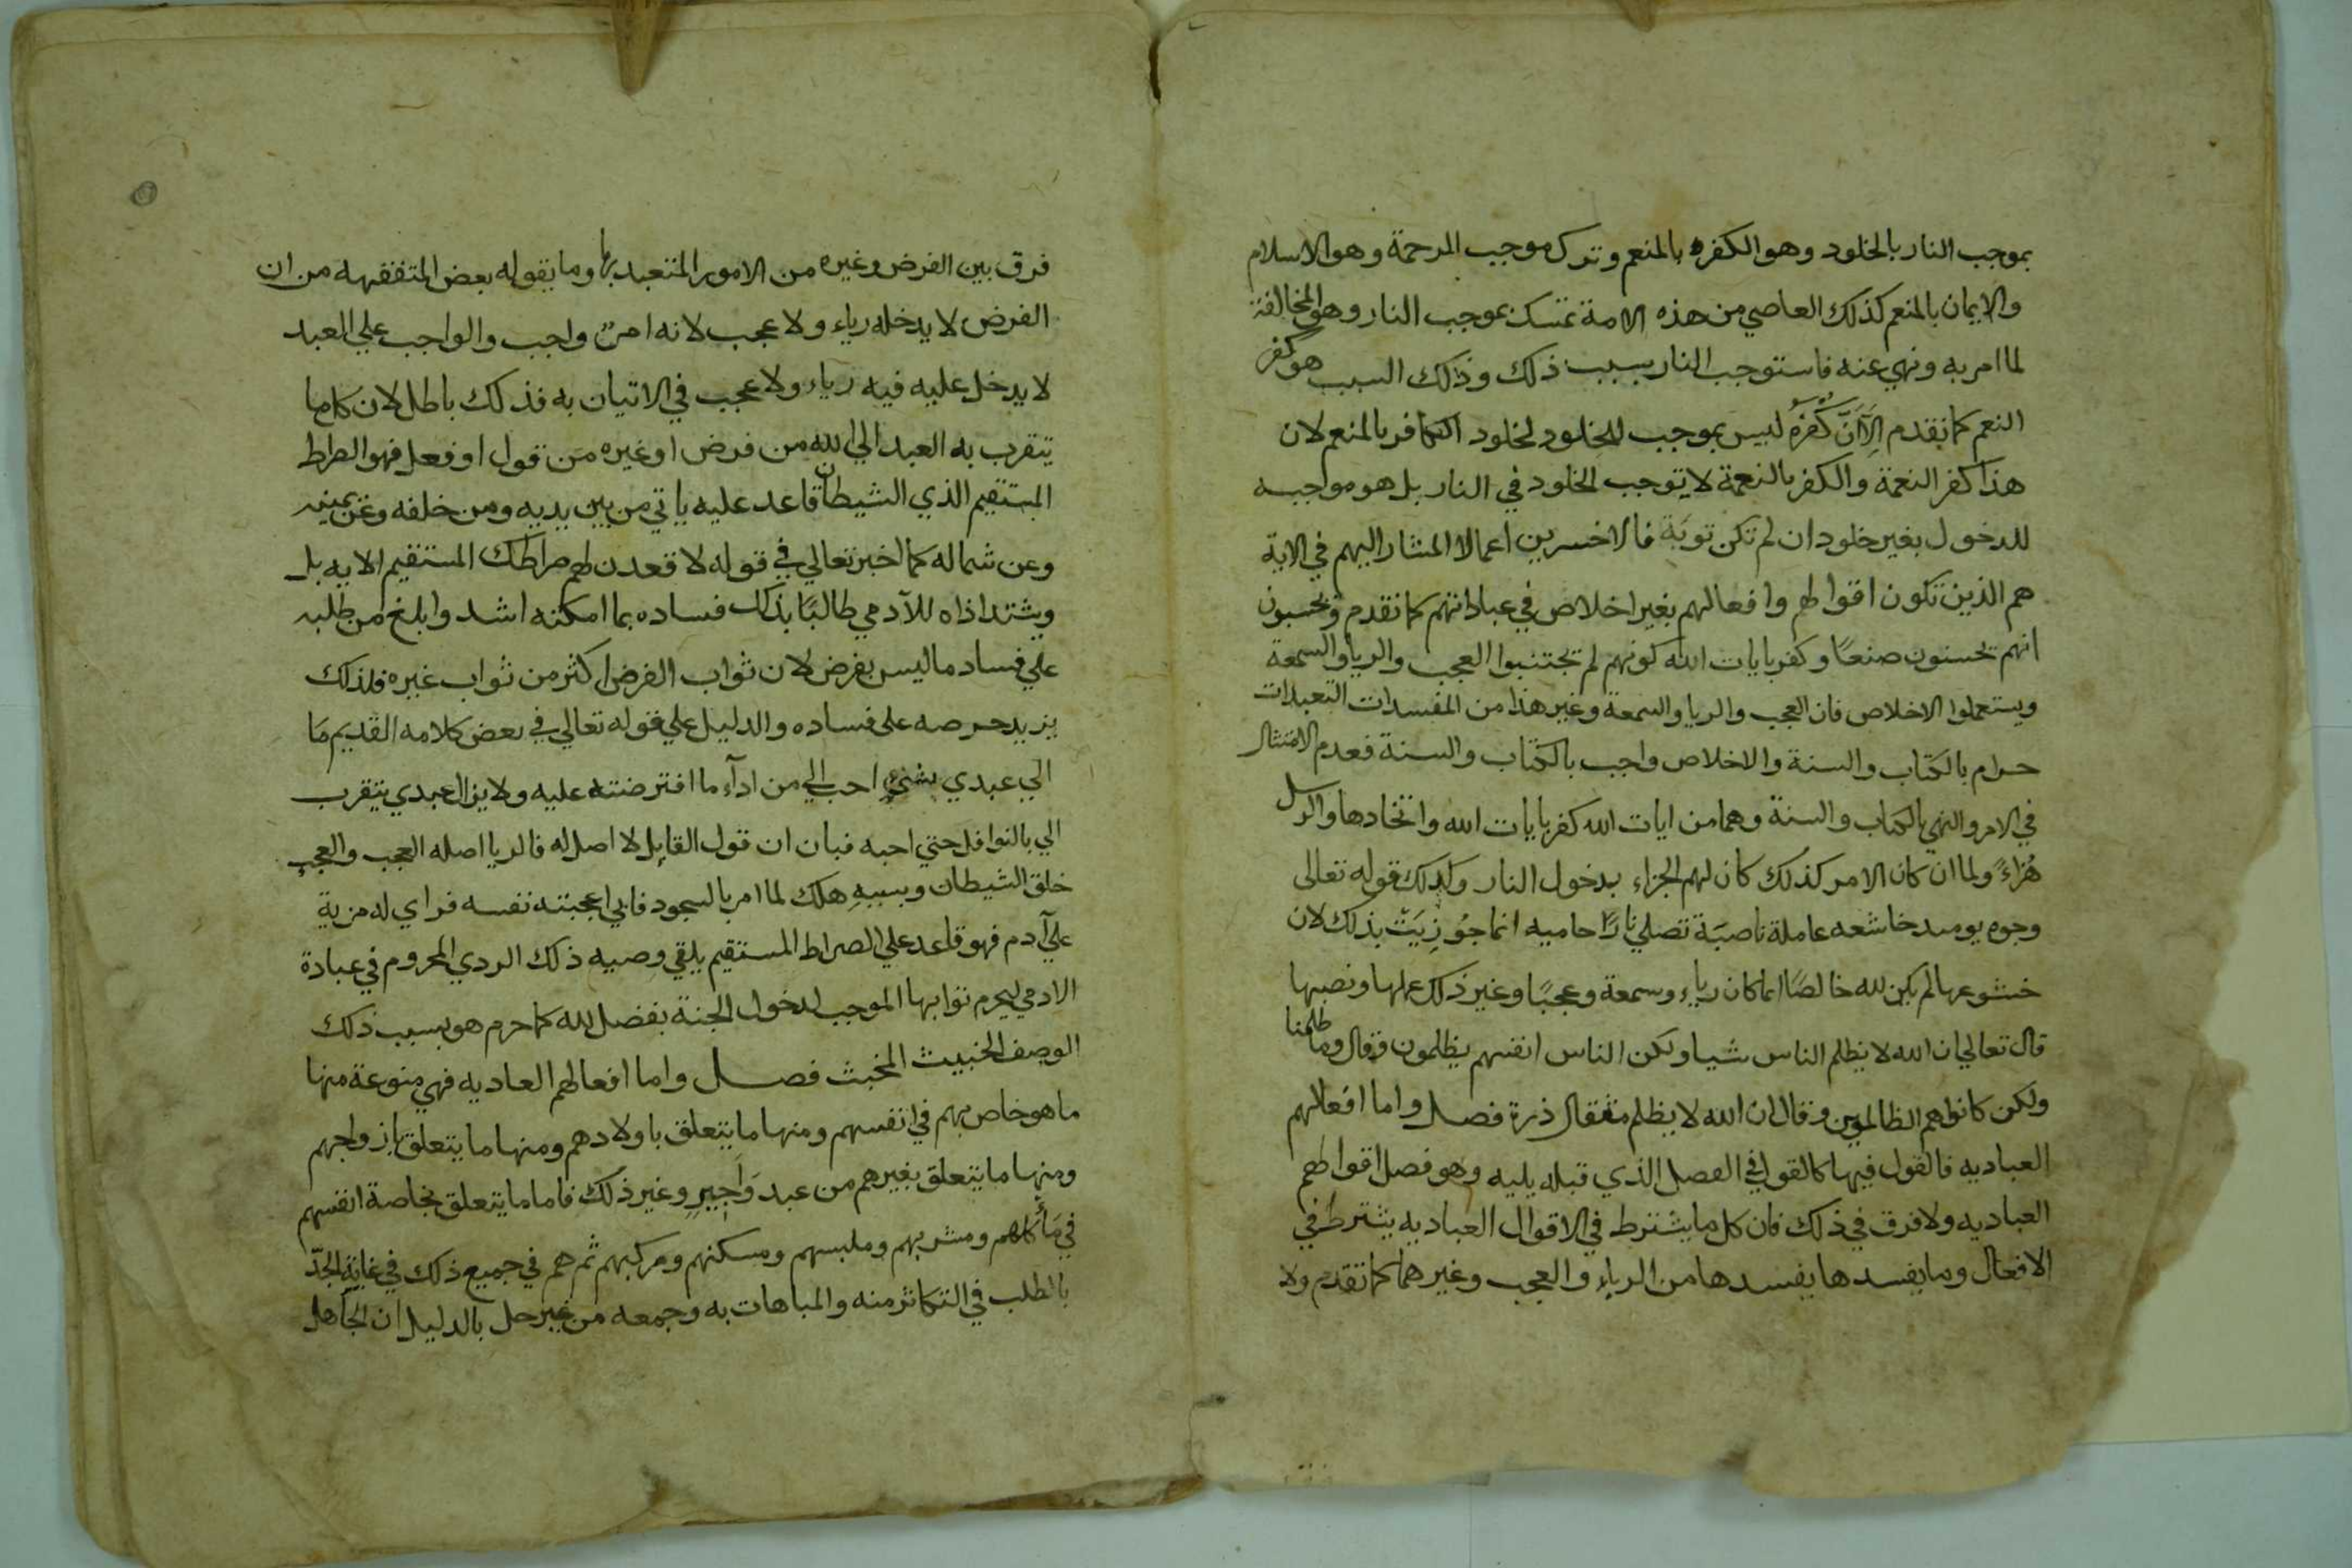 بموجب النار بالخلود وهو الكفره بالمنعم وترك موجب المرحمة وهو الاسلام
والايمان بالمنعم كذلك العاصي من هذه الامة تمسك بموجب النار وهو المخالفة
لما امر به ونهي عنه فاستوجب النار بسبب ذلك وذلك السبب هو كفر
النعم كما تقدم الا ان كفره ليس بموجب للخلود لخلود الكافر بالمنعم لان
هذا كفر النعمة والكفر بالنعمة لا يوجب الخلود في النار بل هو موجبه
للدخول بغير خلود ان لم تكن توبة فالاخسرين اعمالا المشار اليهم في الاية
هم الذين تكون اقوالهم وافعالهم بغير اخلاص في عباداتهم كما تقدم ويحسبون
انهم يحسنون صنعًا وكفر بايات الله كونهم لم يجتنبوا العجب والريا والسمعة
ويستعملوا الاخلاص فان العجب والريا والسمعة وغير هذا من المفسدات التعبدات
حرام بالكتاب والسنة والاخلاص واجب بالكتاب والسنة فعدم الامتثال
في الامر والنهي بالكتاب والسنة وهما من ايات الله كفر بايات الله واتخادها والرسل
هُزاءً ولما ان كان الامر كذلك كان لهم الجزاء بدخول النار وكذلك قوله تعالى
وجوه يومىد خاشعه عاملة ناصبَة تصلي نارًا حاميه انما جُوزِيَتْ بذلك لان
خشوعها لم يكن لله خالصًا انما كان رياءً وسمعة وعجبًا وغير ذلك عملها ونصبها
قال تعالي ان الله لا يظلم الناس شيا ولكن الناس انفسهم يظلمون وقال وما ظلمنا
ولكن كانوا هم الظالمين وقال ان الله لا يظلم مثقال ذرة فصل واما افعالهم
العباديه فالقول فيها كالقول في الفصل الذي قبله يليه وهو فصل اقوالهم
العباديه ولا فرق في ذلك فان كل ما يشترط في الاقوال العباديه يشترط في
الافعال وما يفسدها يفسدها من الرياء والعجب وغيرهما كما تقدم ولا
فرق بين الفرض وغيره من الامور المتعبد بها وما يقوله بعض المتفقهه من ان
الفرض لا يدخله رياء ولا عجب لانه امرٌ واجب والواجب علي العبد
لا يدخل عليه فيه رياء ولا عجب في الاتيان به فذلك باطل لان كلما
يتقرب به العبد الي الله من فرض او غيره من قول او فعل فهو الصراط
المستقيم الذي الشيطان قاعد عليه ياتي من بين يديه ومن خلفه وعن يمينه
وعن شماله كما اخبر تعالي في قوله لاقعدن لهم صراطك المستقيم الايه بل
ويشتد اذاه للآدمي طالبًا بذلك فساده بما امكنه اشد وابلغ من طلبه
علي فساد ما ليس بفرض لان ثواب الفرض اكثر من ثواب غيره فلذلك
يزيد حرصه على فساده والدليل علي قوله تعالي في بعض كلامه القديم مَا
الي عبدي بشئٍ احب الي من ادآء ما افترضته عليه ولا يزال عبدي يتقرب
الي بالنوافل حتي احبه فبان ان قول القايل لا اصل له فالريا اصله العجب والعجب
خلق الشيطان وبسببهِ هلك لما امر بالسجود فابي اعجبته نفسه فراي له مزية
علي آدم فهو قاعد علي الصراط المستقيم يلقي وصيه ذلك الردي المحروم في عبادة
الادمي ليحرم ثوابها الموجب لدخول الجنة بفضل الله كما حرم هو بسبب ذلك
الوصف الخبيث المخبث فصل واما افعالهم العاديه فهي منوعة منها
ما هو خاص بهم في انفسهم ومنها ما يتعلق باولادهم ومنها ما يتعلق بازواجهم
ومنها ما يتعلق بغيرهم من عبد وَاَجِيرٍ وغير ذلك فاما ما يتعلق بخاصة انفسهم
في مَأكلهم ومشربهم وملبسهم ومسكنهم ومركبهم ثم هم في جميع ذلك في غايَةِ الجدّ
بالطلب في التكاثر منه والمباهات به وجمعه من غير حل بالدليل ان الجاهل